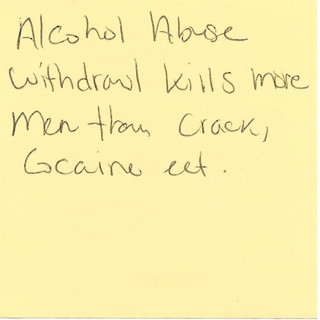 Alcohol Abose
withdrawl kills more
Men than Crack,
Cocaine eet.